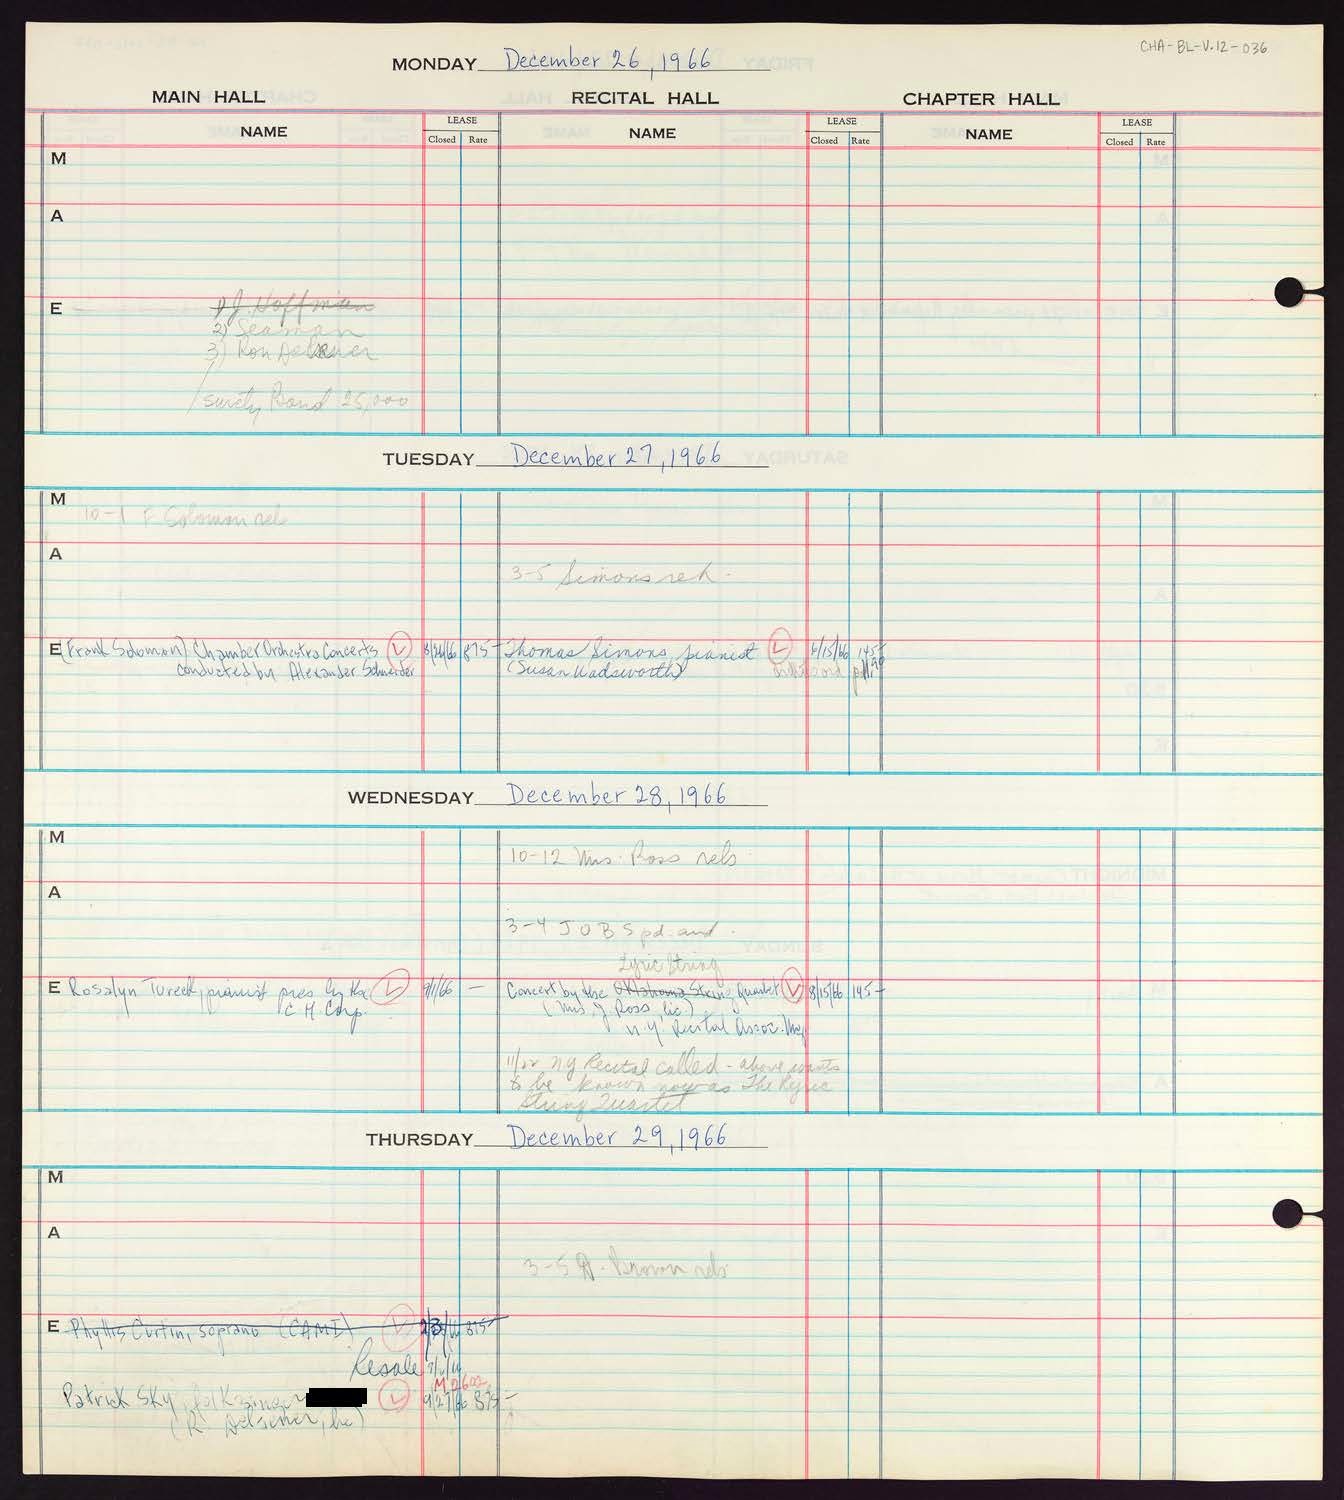 CHA-BL-V.12-036
MONDAY December 26, 1966
MAIN HALL RECITAL HALL CHAPTER HALL
NAME LEASE NAME LEASE NAME LEASE
Closed Rate Closed Rate Closed Rate
M
A
E 1) J. Hoffman
2) Seaman
3) Ron Delsener
Surety Bond 25,000
TUESDAY December 27, 1966
M
10-1 F. Solomon reh
A
3-5 Simons reh.
E (Frank Solomon) Chamber Orchestra Concerts 875- Thomas Simons pianist 6/15/66 145-
conducted by Alexander Schneider (Susan Wadsworth)
WEDNESDAY December 28, 1966
M
10-12 Mrs. Ross reh
A
3-4 JOBS pd. aud.
Lyric String
E Rosalyn Tureck, pianist pres by the 9/1/66 - Concert by the Oklahoma String Quartet 8/15/66 145-
C H Corp. (Mrs. J. Ross, lic.)
N.Y. Recital Assoc. Mgr
NY Recital called - above wants
to be known now as The Lyric
String Quartet
THURSDAY December 29, 1966
M
A
3-5 Brown reh
E Phyllis Curtin, soprano (CAMI) 875-
Resale
M 2602
Patrick Sky, folksinger 9/27/66 875-
(R. Delsener, lic)